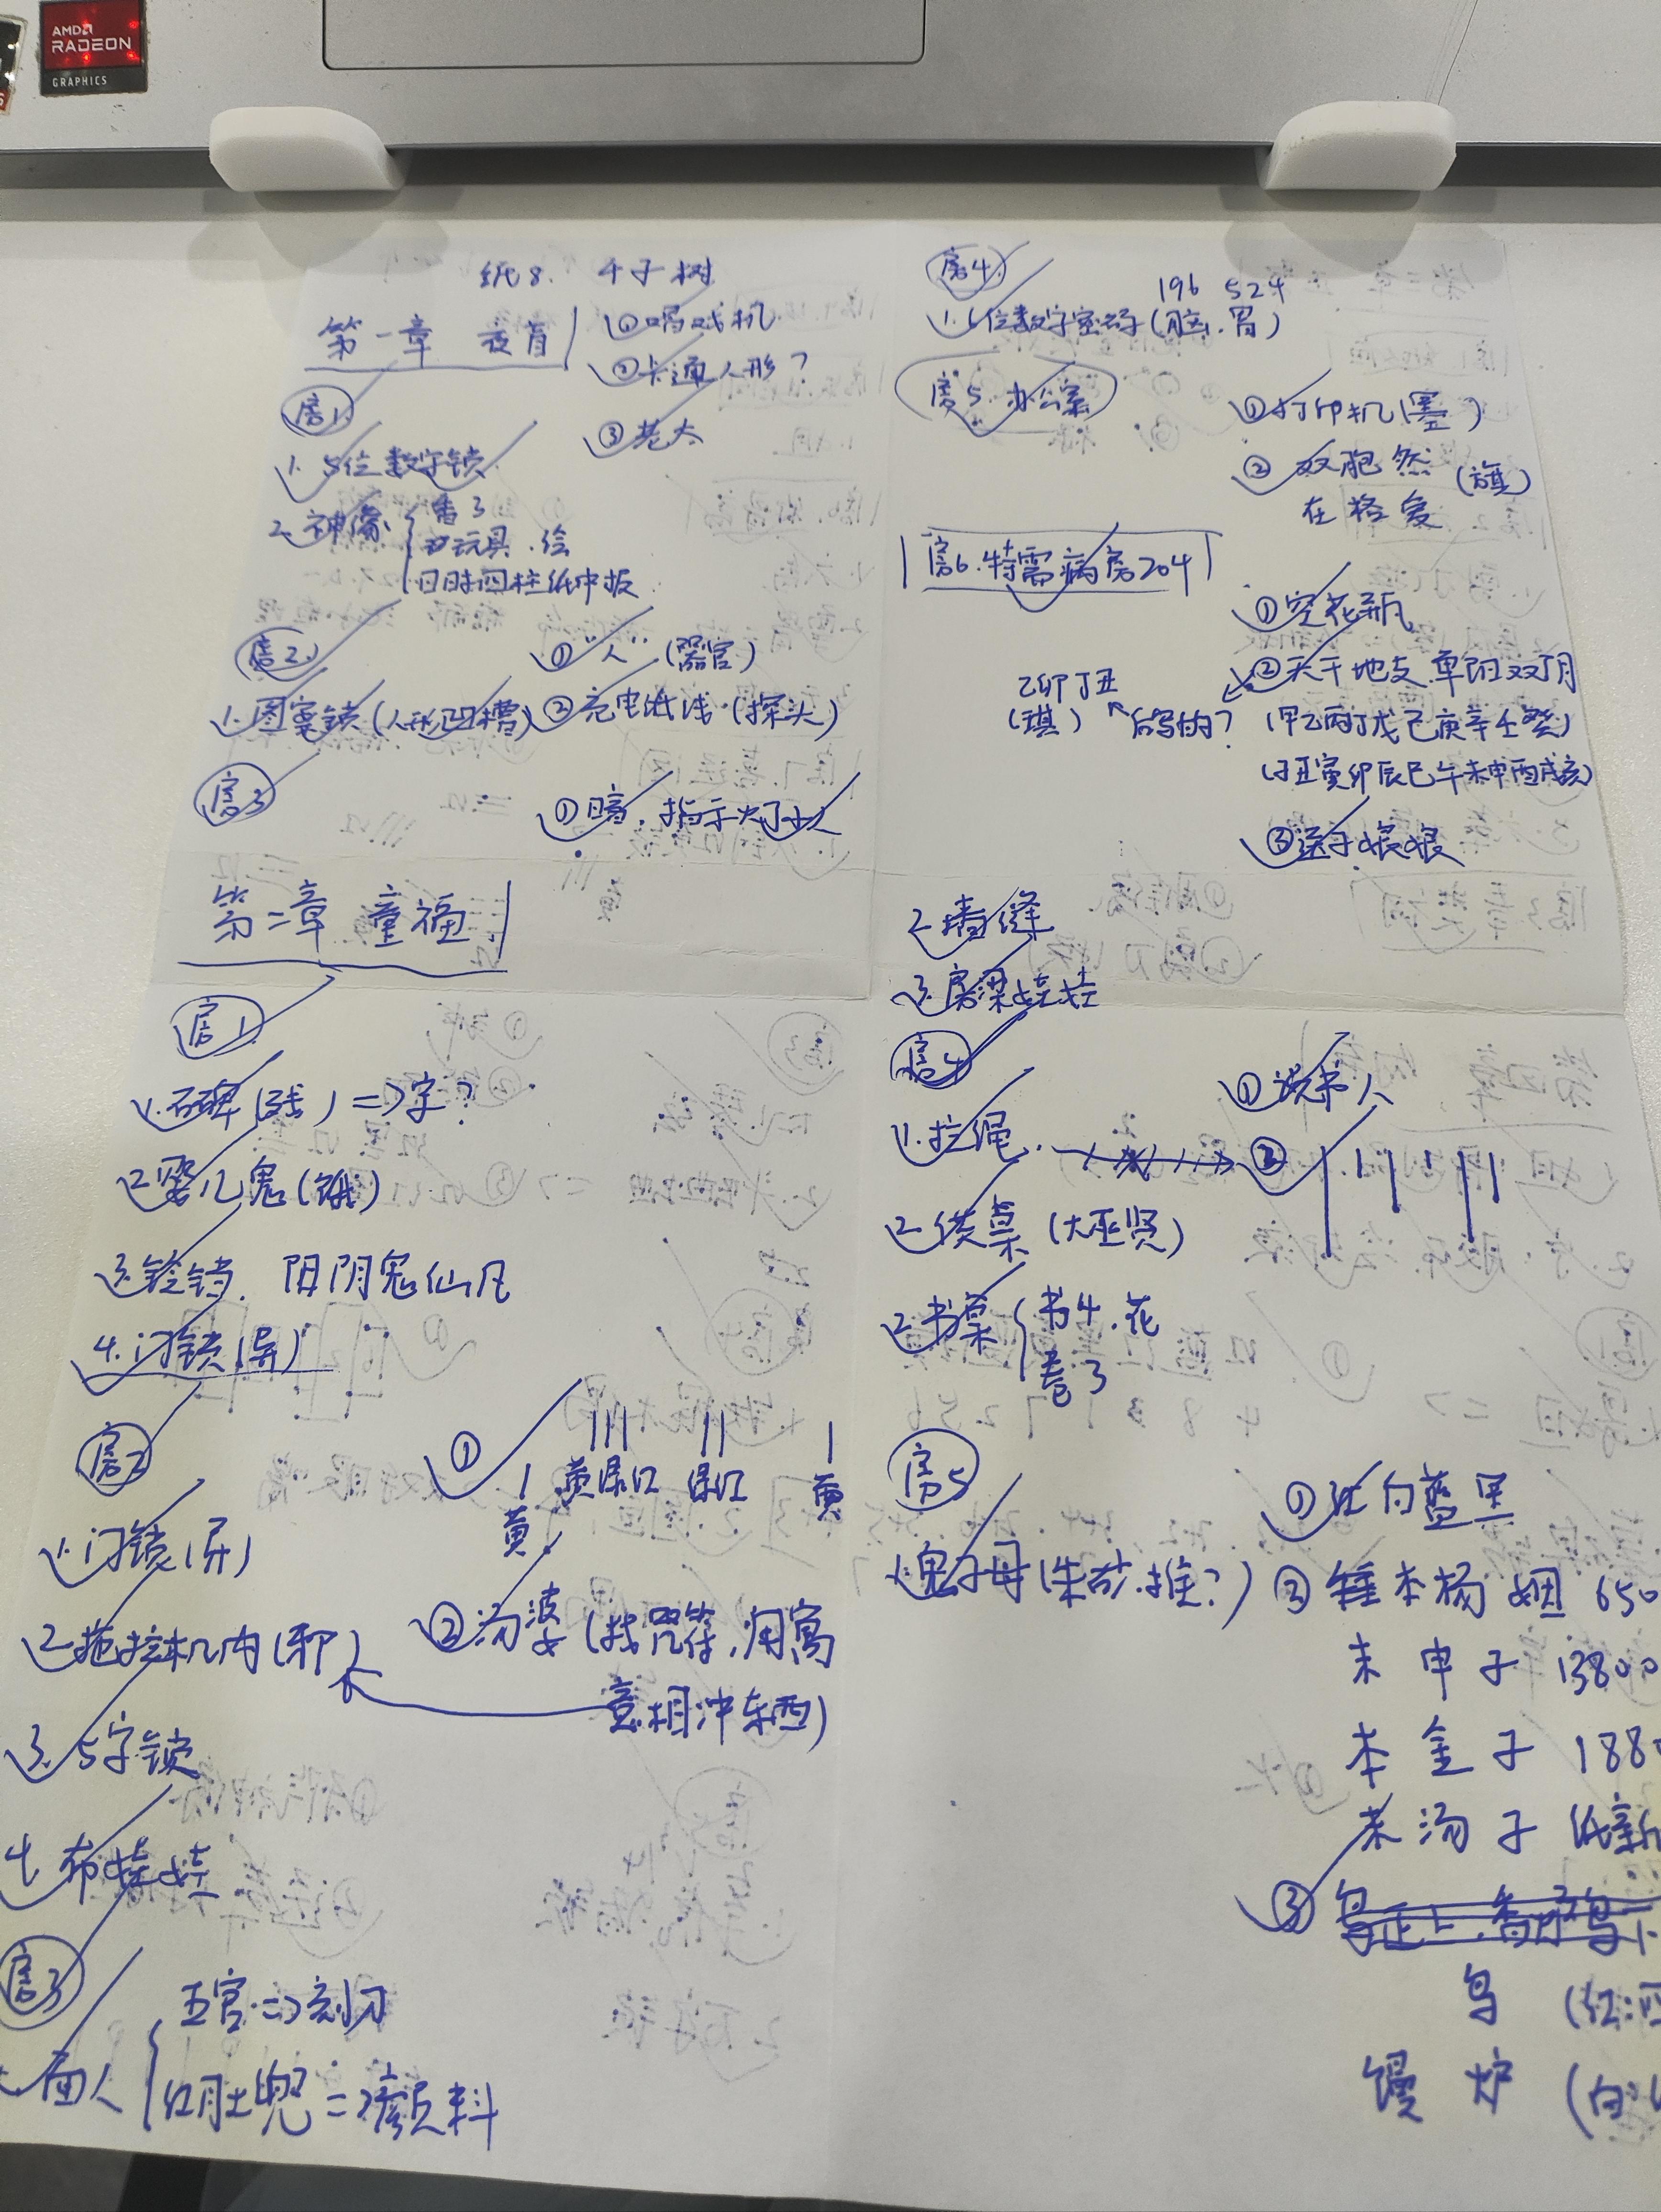 AMD
RADEON
GRAPHICS
纸8. 千子树
第一章
①唱戏机
②卡通人形？
③老太
房1
1. 5位数字锁
2. 神像 香3
玩具．绘
日时四柱纸中报
房2
①"人"（器官）
1. 图案锁（人形凹槽）
②充电线（探头）
房3
①暗．指示灯小人
房4
196 524
1. 6位数字密码（脑．胃）
房5. 办公室
①打印机（墨）
②双胞然（旗）
在格爱
房6. 特需病房204
①空花瓶
②天干地支．单阳双阴
乙卯丁丑
（琪）
后写的？
（甲乙丙丁戊己庚辛壬癸）
（子丑寅卯辰巳午未申酉戌亥）
③送子娘娘
第二章 童福
房1
1. 石碑（残）=>字？
2. 婴儿鬼（饿）
3. 铃铛．阴阳鬼仙凡
4. 门锁（异）
房2
① 黄 黄绿红 绿红 黄
1. 门锁（异）
2. 拖拉机内（邪）
②汤婆（找咒符，用寓
意相冲东西）
3. 5字锁
4. 布娃娃
房3
五官=>刻刀
面人
红肚兜=>颜料
2. 墙缝
3. 房梁娃娃
房4
①说书人
1. 拉绳
②
2. 供桌（大巫贤）
2. 书桌 书4．花
卷3
房5
①红白蓝黑
1. 鬼子母（朱砂．推？）
② 杨 姻 650
未 申 子 13800
本 金 子 1880
汤 子 纸新
③
鸟 （红：
馒 炉 （白：